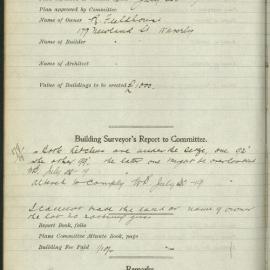 Plan approved by Committee
Name of Owner R. Fieldhouse
179 Newland St Waverley
Name of Builder
Name of Architect
Value of Buildings to be erected £1000
Building Surveyor's Report to Committee.
Both Kitchens are under the size, one 92'
the other 99'. the later one might be overlooked
July 18-9
to Comply July 20-19
I cannot find the land or name of owner
Report Book, folio
Plans Committee Minute Book, page
Building Fee Paid
Remarks